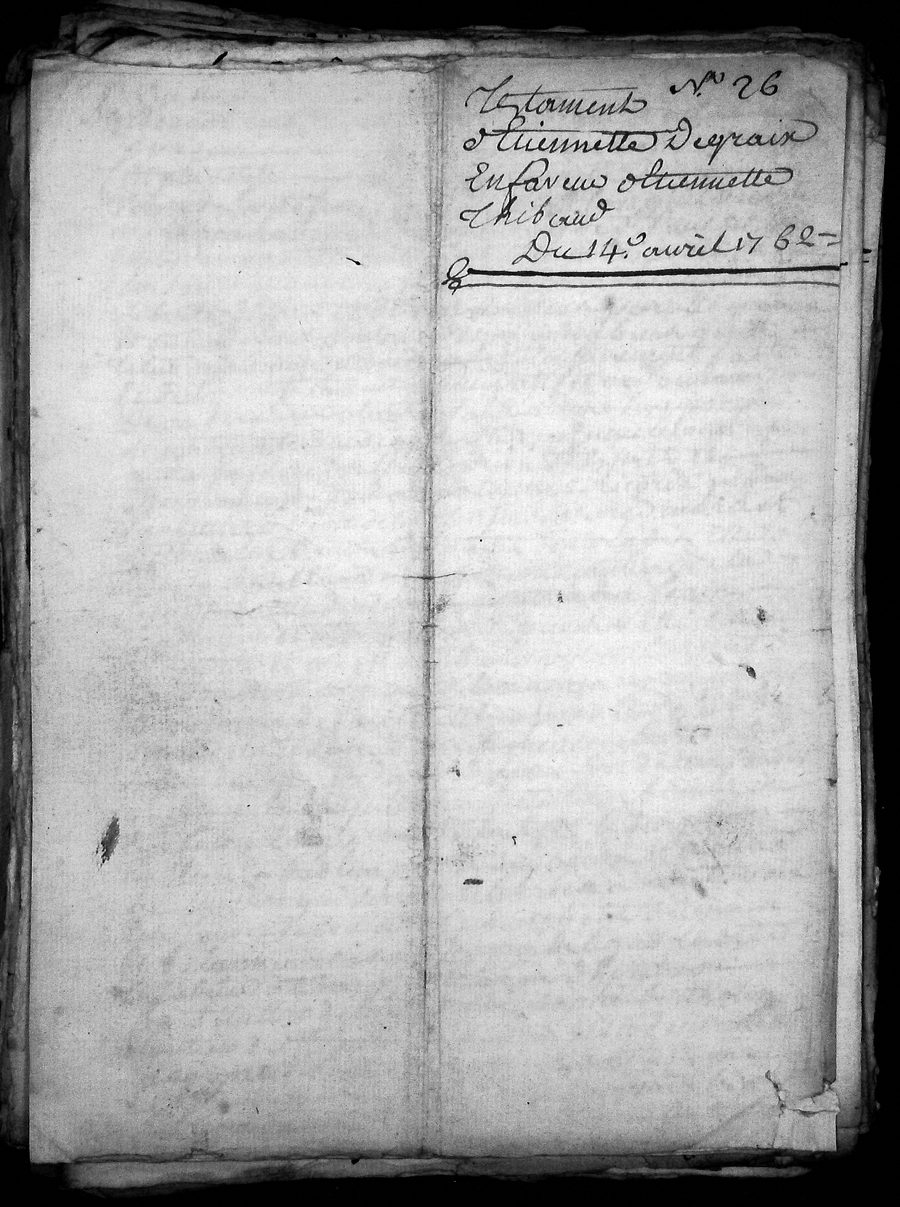 Testament N.ro 26
d'Etiennette Degraix
En faveur d'Etiennette
Thibaud
Du 14.e avril 1762=